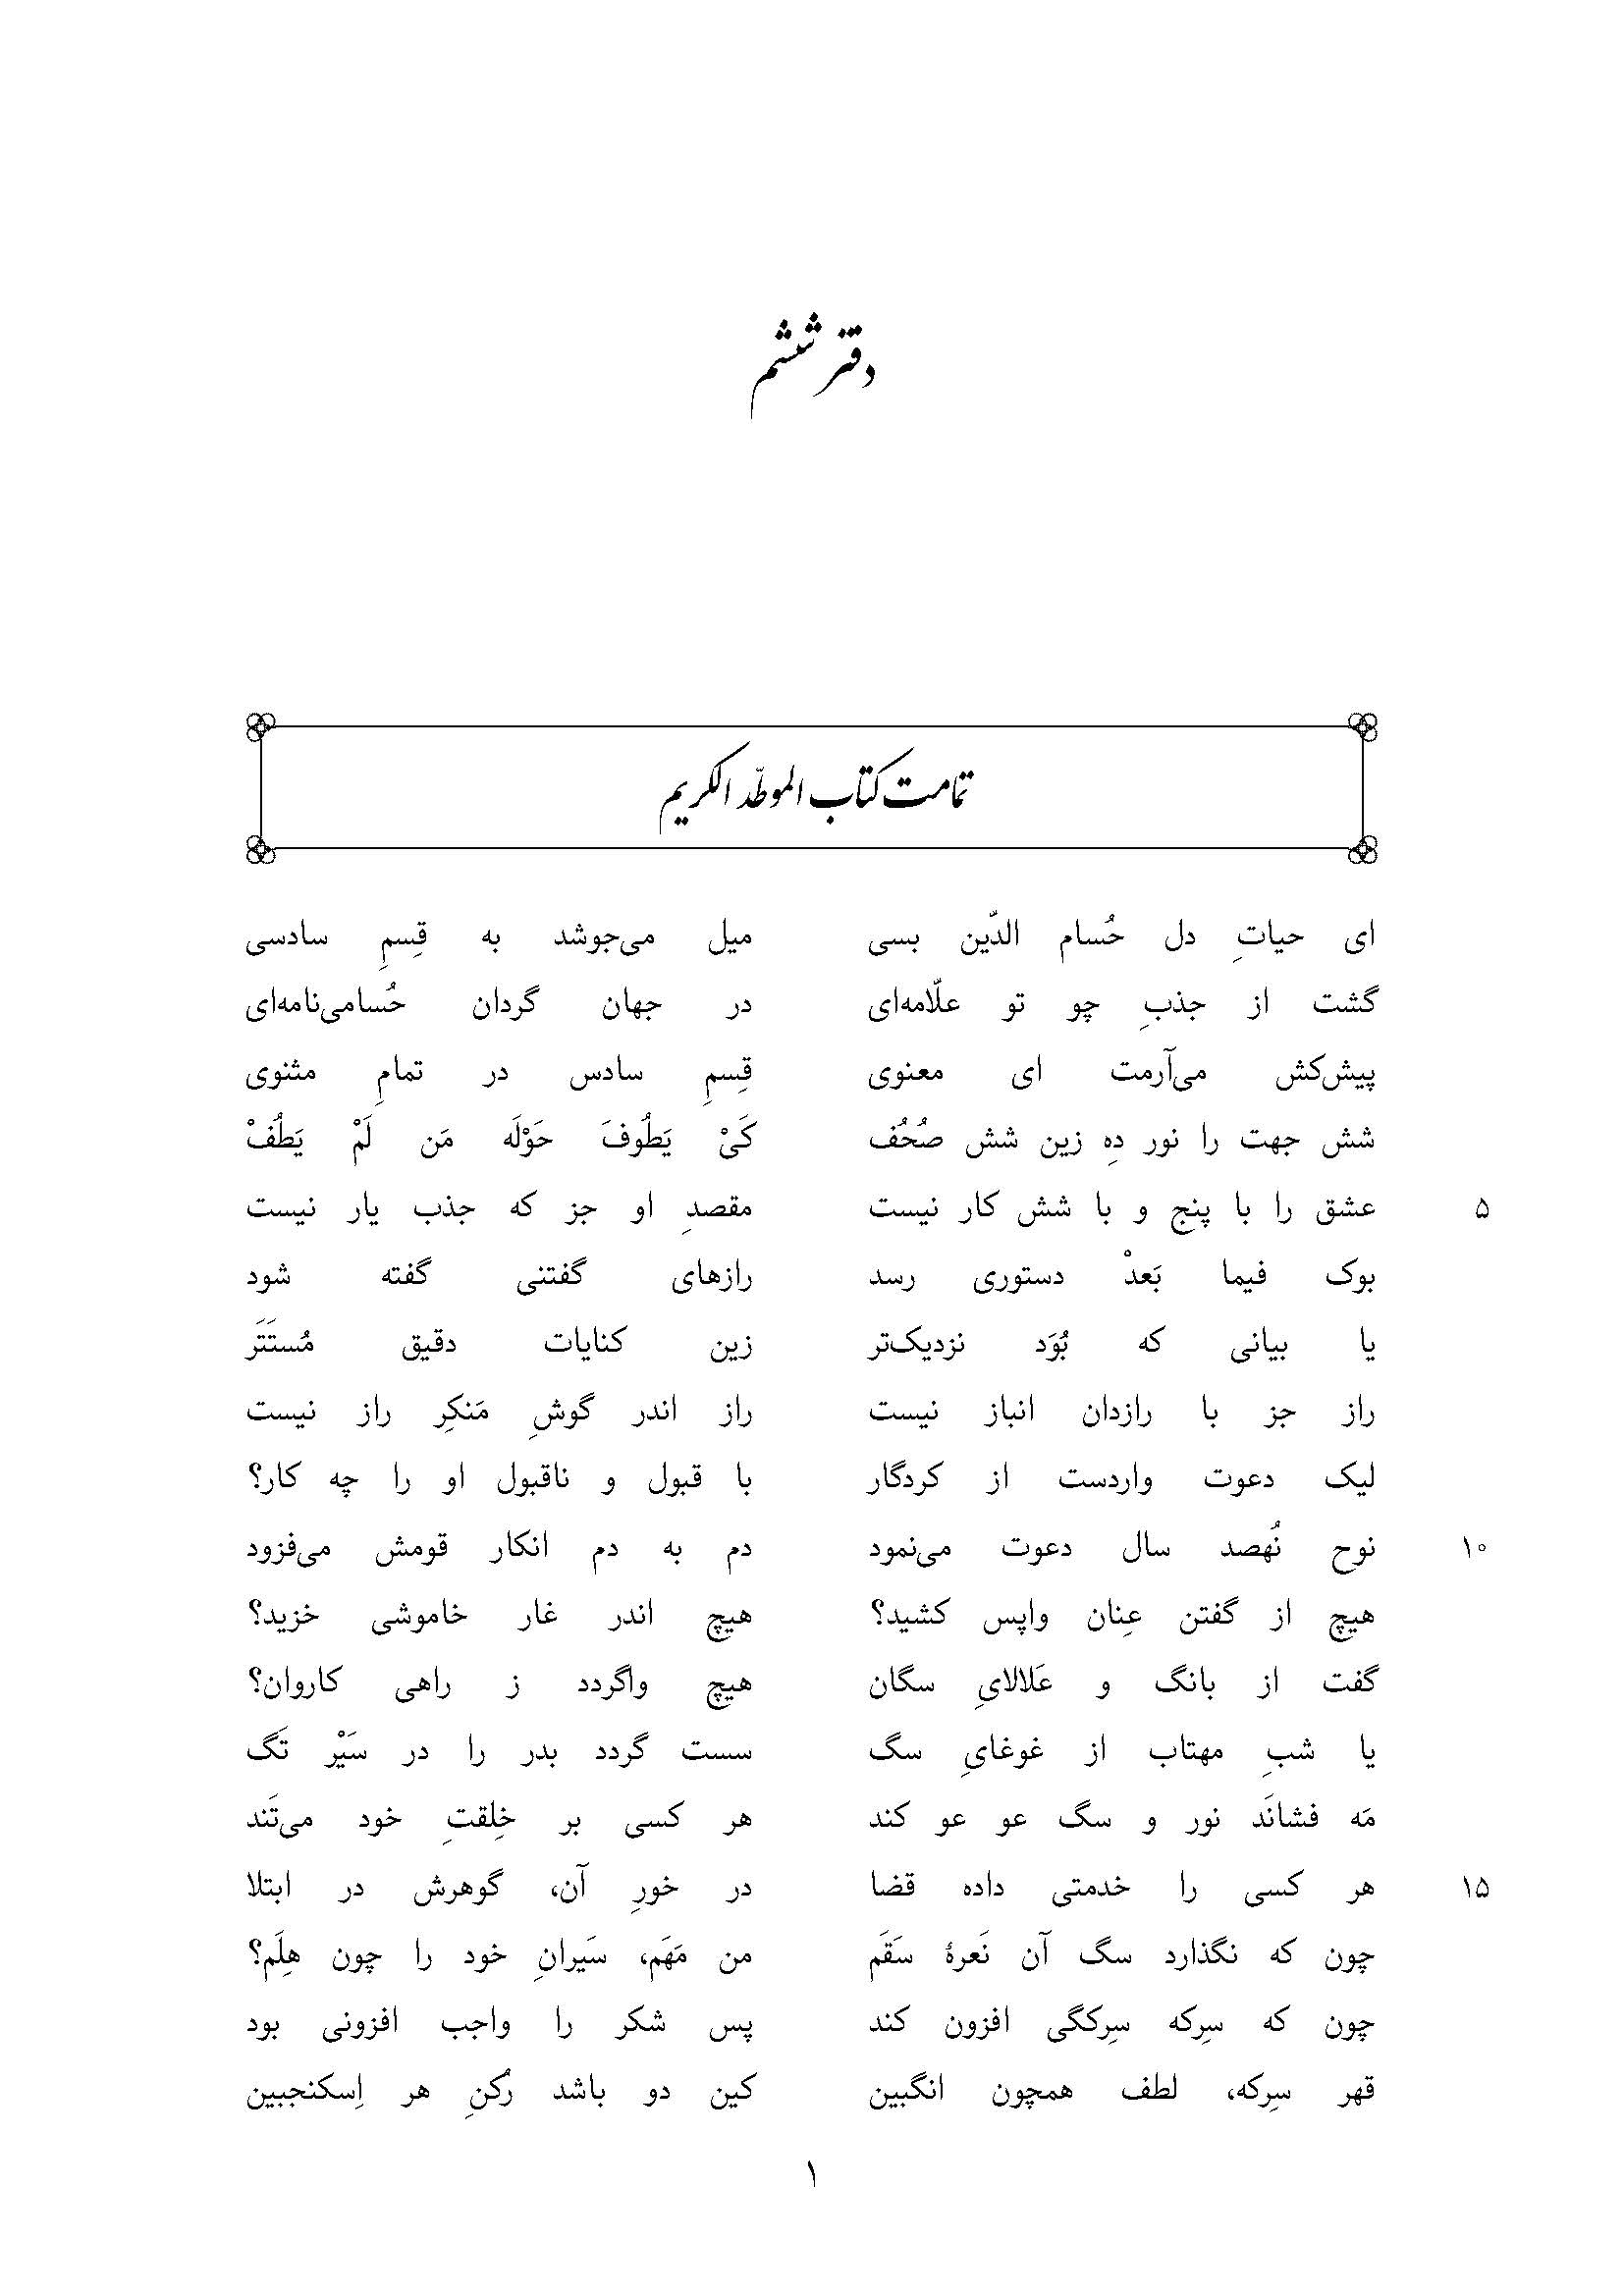 دفتر ششم
تمامت کتاب الموطّد الکریم
ای حیاتِ دل حُسام الدّین بسی میل می‌جوشد به قِسمِ سادسی
گشت از جذبِ چو تو علّامه‌ای در جهان گردان حُسامی‌نامه‌ای
پیش‌کش می‌آرمت ای معنوی قِسمِ سادس در تمامِ مثنوی
شش جهت را نور دِه زین شش صُحُف کَیْ یَطُوفَ حَوْلَه مَن لَمْ یَطُفْ
۵ عشق را با پنج و با شش کار نیست مقصدِ او جز که جذب یار نیست
بوک فیما بَعدْ دستوری رسد رازهای گفتنی گفته شود
یا بیانی که بُوَد نزدیک‌تر زین کنایات دقیق مُستَتَر
راز جز با رازدان انباز نیست راز اندر گوشِ مَنکِر راز نیست
لیک دعوت واردست از کردگار با قبول و ناقبول او را چه کار؟
۱۰ نوح نُهصد سال دعوت می‌نمود دم به دم انکار قومش می‌فزود
هیچ از گفتن عِنان واپس کشید؟ هیچ اندر غار خاموشی خزید؟
گفت از بانگ و عَلالایِ سگان هیچ واگردد ز راهی کاروان؟
یا شبِ مهتاب از غوغایِ سگ سست گردد بدر را در سَیْر تَگ
مَه فشانَد نور و سگ عو عو کند هر کسی بر خِلقتِ خود می‌تَند
۱۵ هر کسی را خدمتی داده قضا در خورِ آن، گوهرش در ابتلا
چون که نگذارد سگ آن نَعرهٔ سَقَم من مَهَم، سَیرانِ خود را چون هِلَم؟
چون که سِرکه سِرکگی افزون کند پس شکر را واجب افزونی بود
قهر سِرکه، لطف همچون انگبین کین دو باشد رُکنِ هر اِسکنجبین
۱